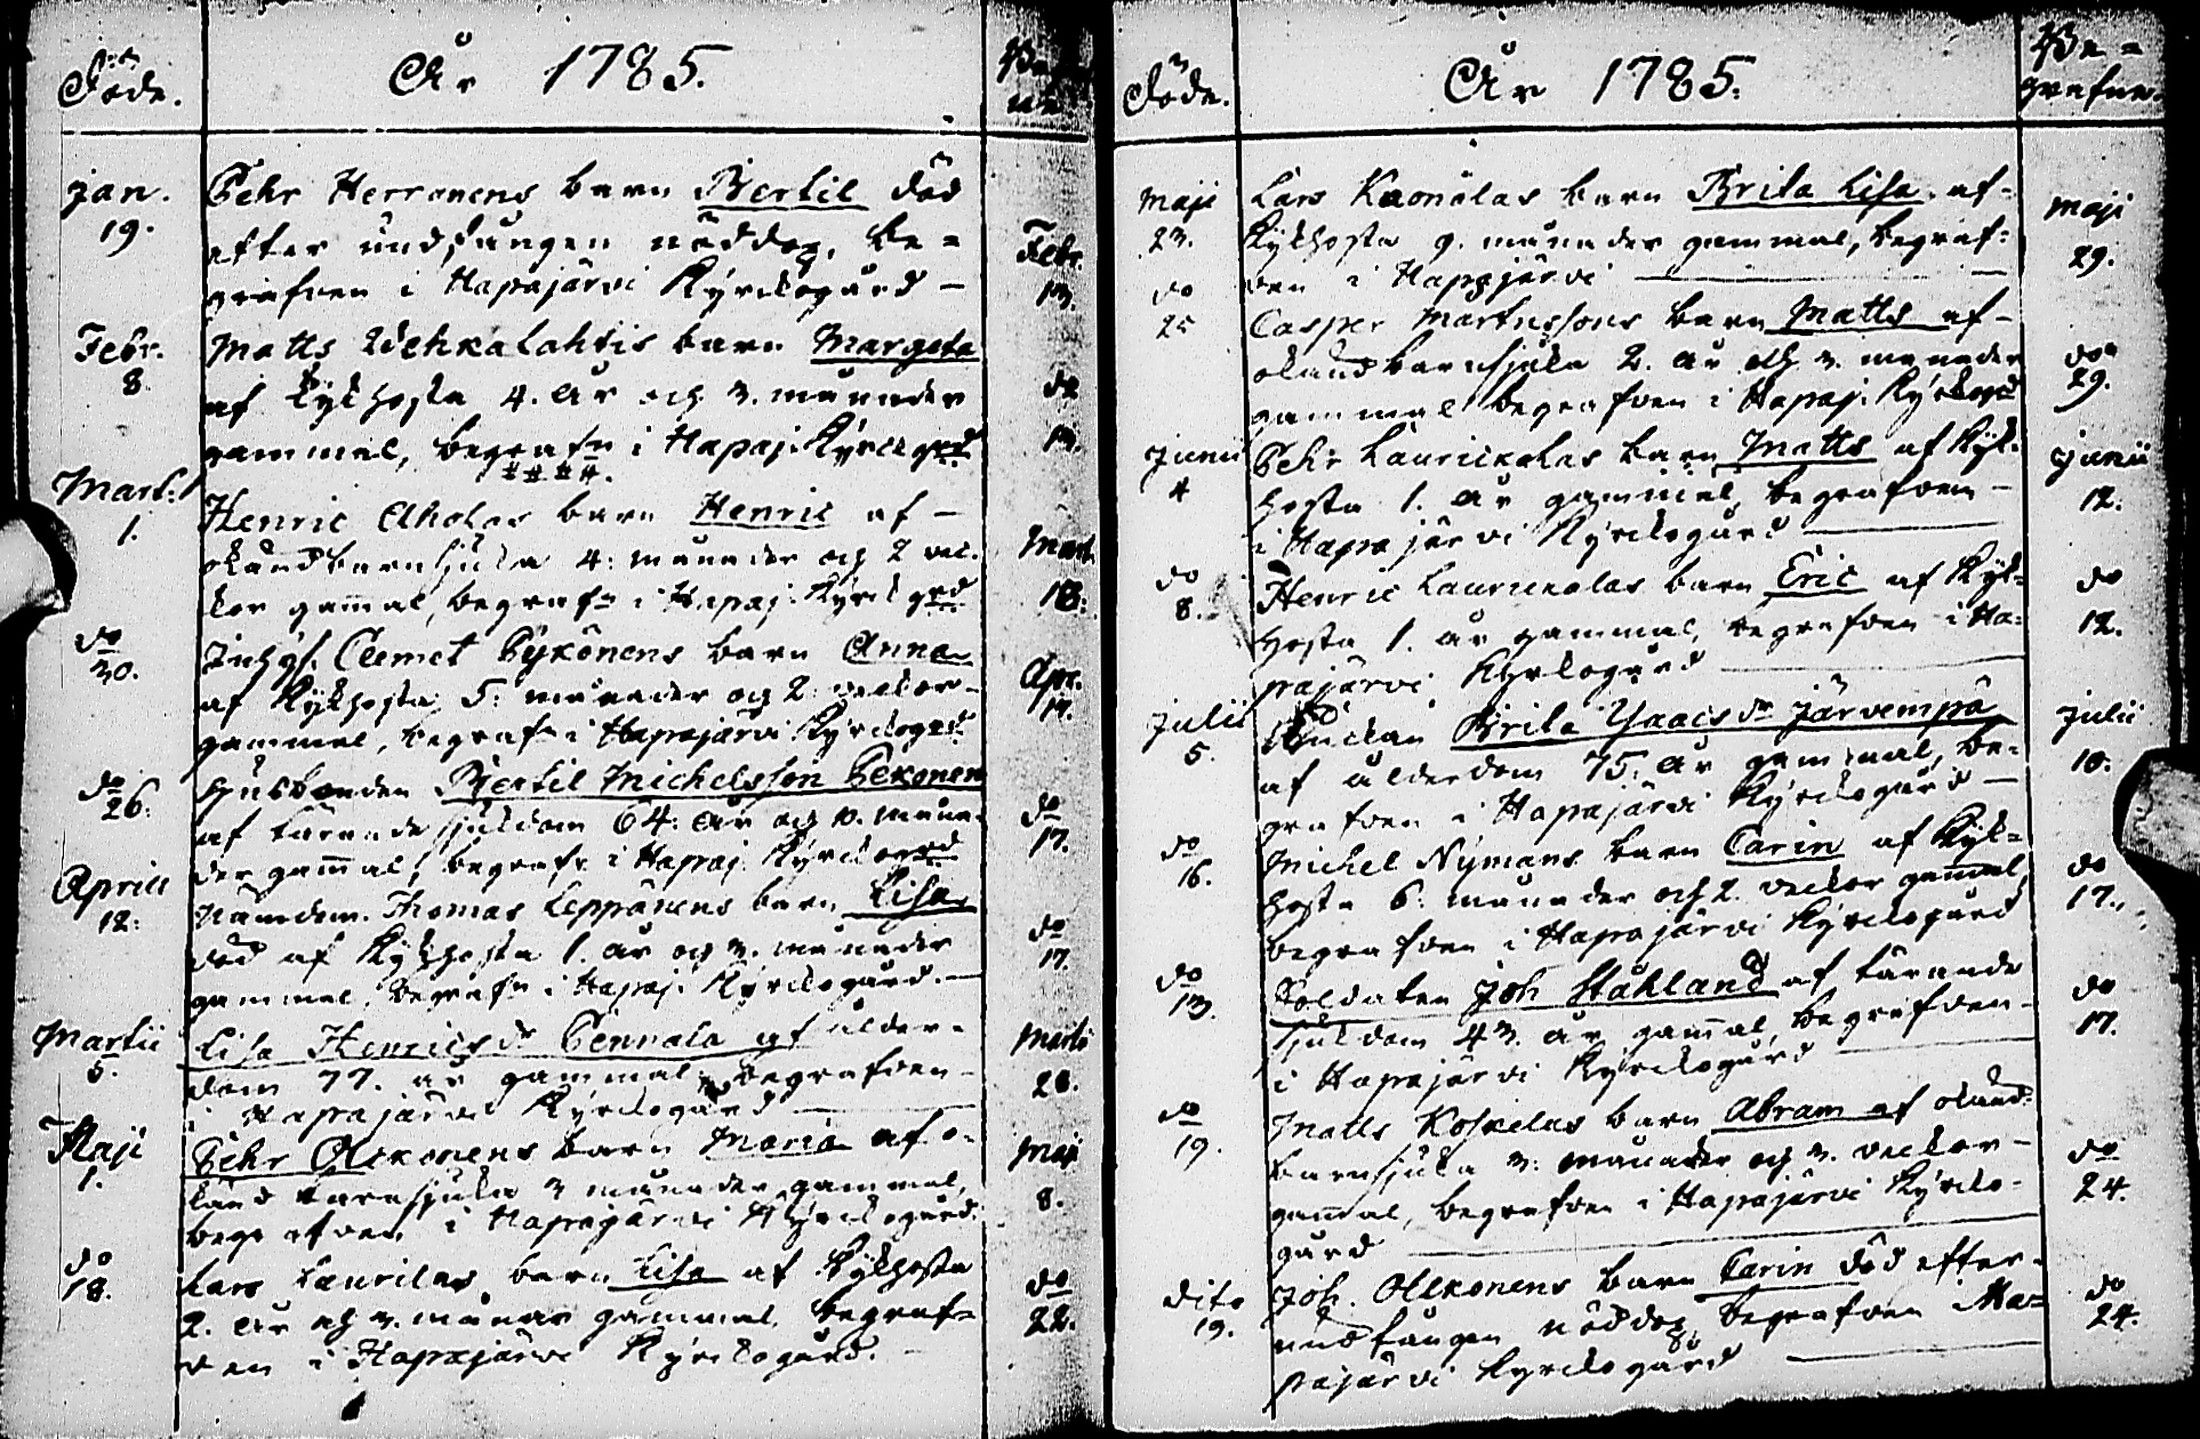 Döde.
År 1785.
Jan. 19. Pehr Herranens barn Bertil död
efter undfången nöddop, be=
grafven i Hapajärvi Kyrckogård — Febr. 13.
Febr. 8. Matts Wehkalahtis barn Margeta
af Kykhosta 4. år och 3. månader
gammal, begrafn i Hapaj. Kyrckgrd do 13.
Mart: 1. Henric Aholas barn Henric af —
okänd barnsjuka 4: månader och 2 vec.
kor gam̄al, begrafn i Hapaj. Kyrckgrd Mart. 13.
do 30. Inhys. Clemet Pykönens barn Anna
af Kykhosta 5: månader och 2 veckor
gammal, begrafn i Hapajärvi Kyrckogrd Apr. 17.
do 26. Husbonden Bertil Michelsson Pekonen
af tärande sjukdom 64: år och 10. måna=
der gam̄al, begrafn i Hapaj. Kyrckogrd do 17.
Aprill 12: Nämdem. Thomas Leppänens barn Lisa
död af Kykhosta 1. år och 3. månader
gammal, begrafn i Hapaj. Kyrckogård. — do 17.
Martii 5. Lisa Henricsdr Pennala af ålder=
dom 77. år gammal, begrafven
i Hapajärvi Kyrckogård — Martii 20.
Maji 1. Pehr Olckonens barn Maria af o=
känd barnsjuka 3 månader gammal,
begrafven i Hapajärvi Kyrckogård. Maji 8.
do 18. Lars Laurilas barn Lisa af Kykhosta
2. år och 3. månar gammal, begraf=
ven i Hapajärvi Kyrckogård. do 22.
Döde.
År 1785.
Be=
grafne.
Maji 23. Lars Kaonolas barn Brita Lisa af=
Kykhosta 9. månader gammal, begraf=
ven i Hapajärvi — Maji 29.
do 25 Casper Martinssons barn Matts af —
okänd barnsjuka 2. år och 3. månader
gammal begrafven i Hapaj. Kyrckogrd do 29.
Junii 4 Pehr Laurickalas barn Matts af Kyk=
hosta 1. år gammal, begrafven —
i Hapajärvi Kyrckogård — Junii 12.
do 8. Henric Laurickalas barn Eric af Kyk=
hosta 1. år gammal, begrafven i Ha=
pajärvi Kyrkogård — do 12.
Julii 5. Änckan Brita Ysaacsdr Järvempä
af ålderdom 75. år gammal, be=
grafven i Hapajärvi Kyrckogård — Julii 10.
do 16. Michel Nymans barn Carin af Kyk=
hosta 6. månader och 2. veckor gam̄al,
begrafven i Hapajärvi Kyrckogård do 17.
do 13. Soldaten Joh Ståhland af tärande
sjukdom 43. år gam̄al, begrafven
i Hapajärvi Kyrckogård — do 17.
do 19. Matts Koskelas barn Abram af okänd
barnsjuka 3: månader och 3. veckor —
gam̄al, begrafven i Hapajärvi Kyrcko=
gård — do 24.
dito 19. Joh. Olckonens barn Carin död efter
undfången nöddop, begrafven i Ha=
pajärvi Kyrckogård — do 24.